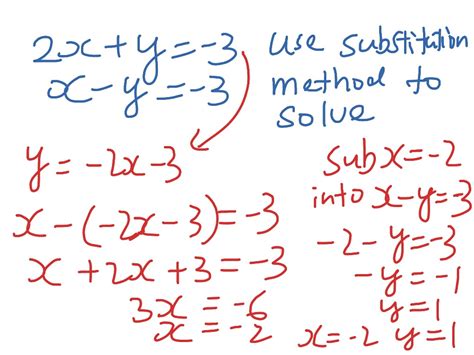 2x+y=-3
x-y=-3
use substitution
method to
solve
y=-2x-3
x-(-2x-3)=-3
x+2x+3=-3
3x=-6
x=-2
sub x=-2
into x-y=-3
-2-y=-3
-y=-1
y=1
x=-2 y=1